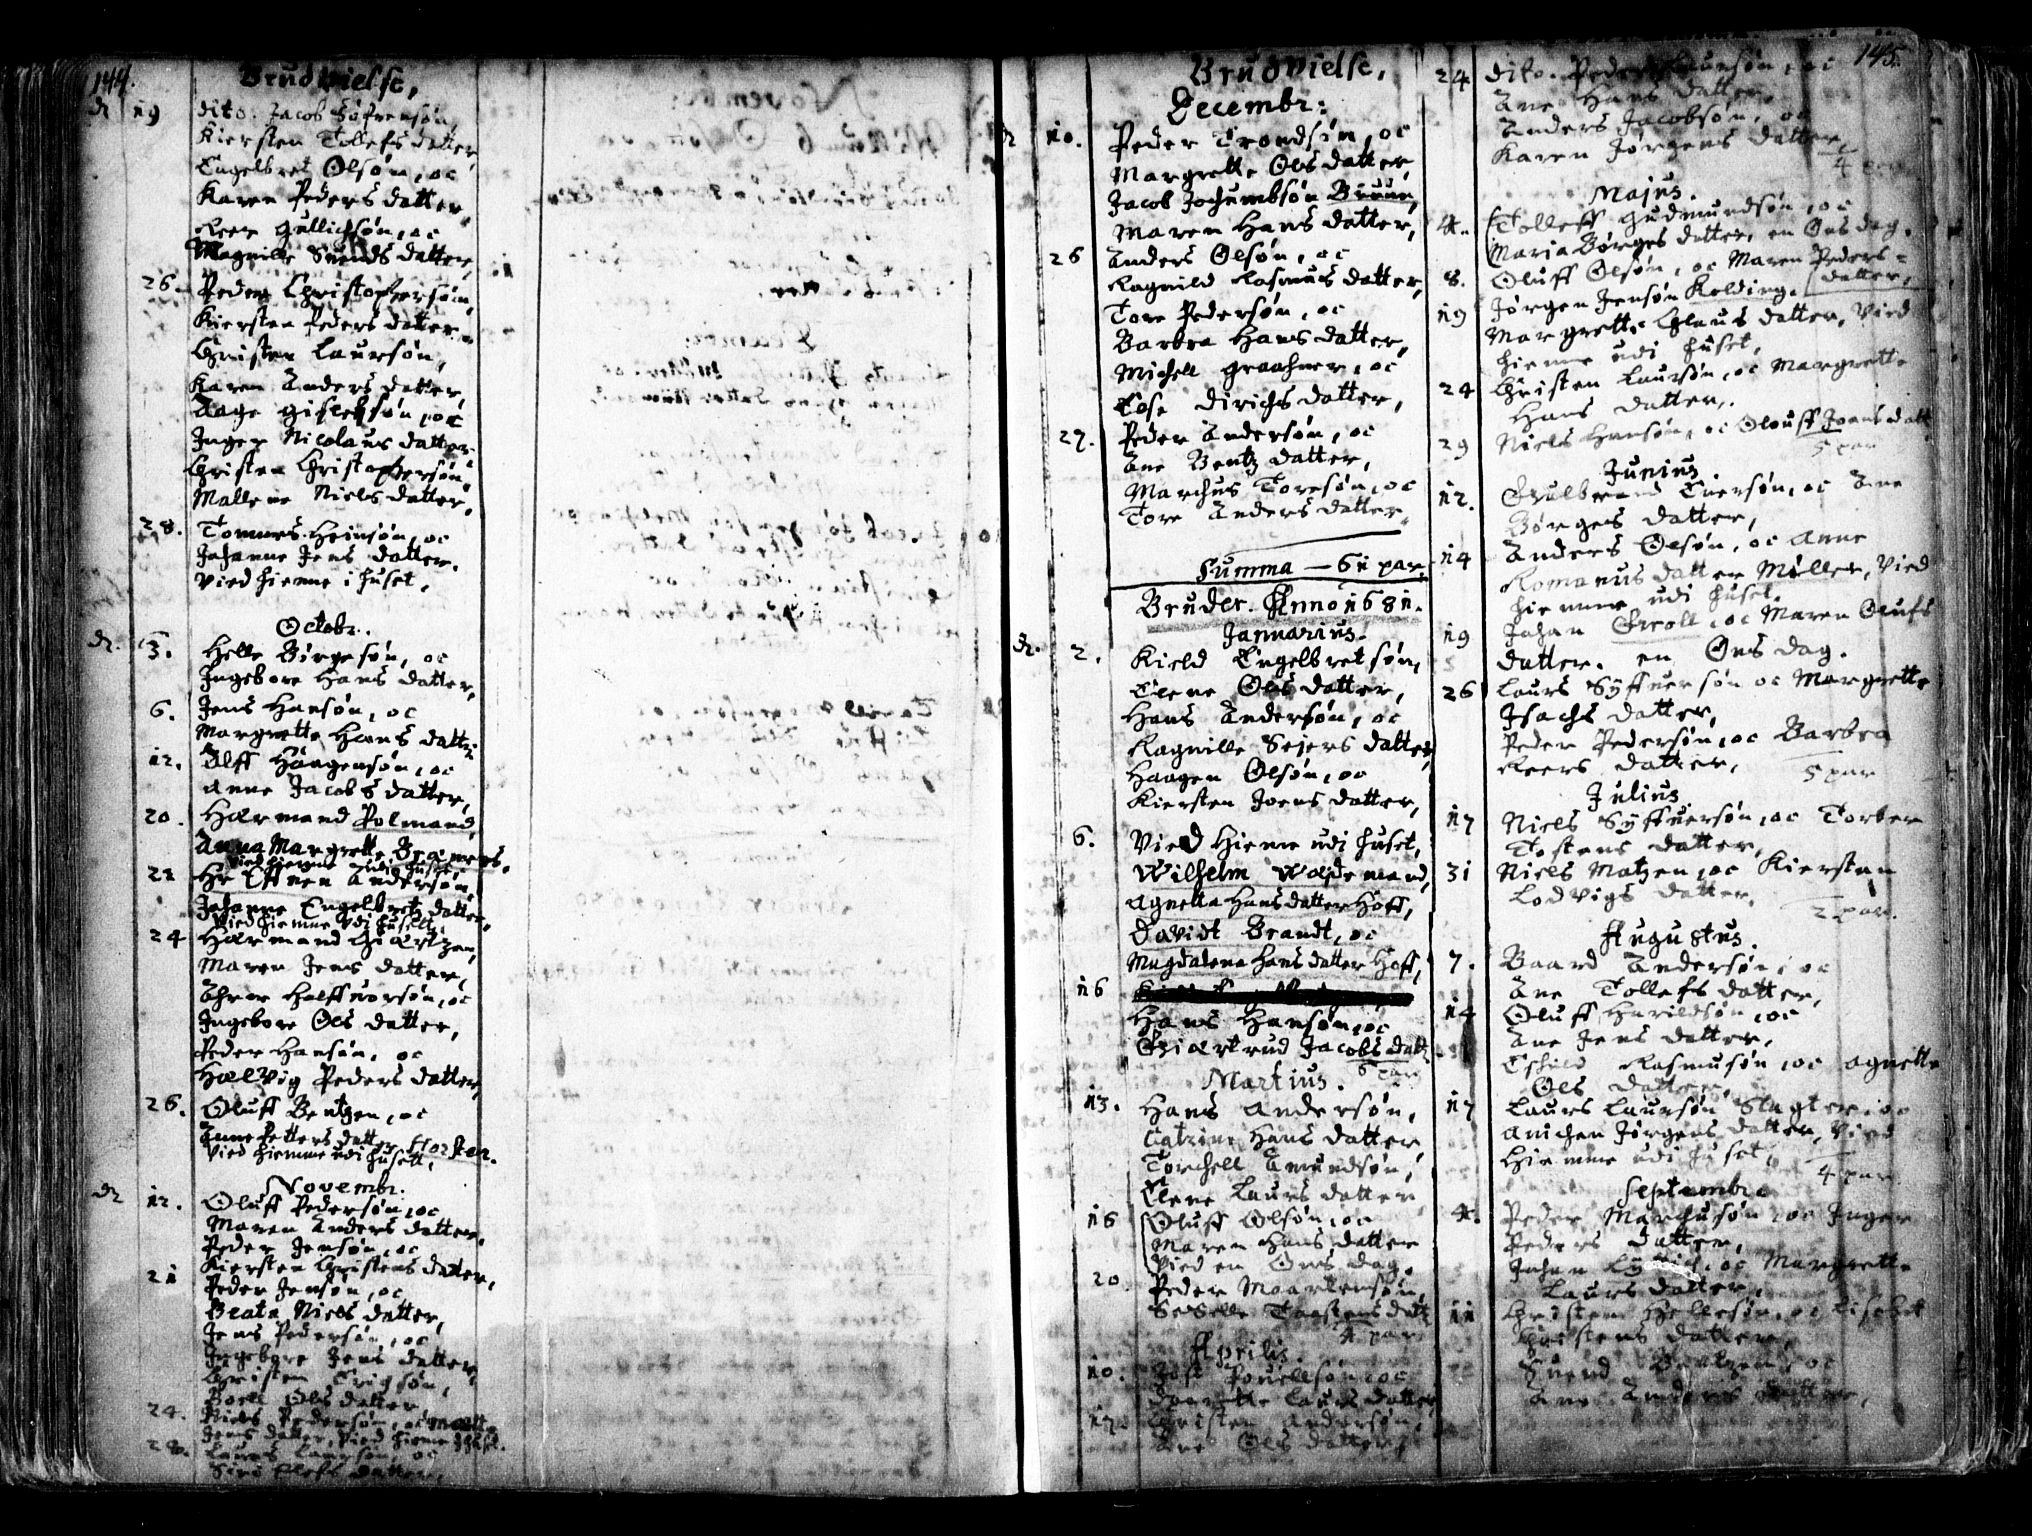 144.
Brudvielse,
d 19 dito. Jacob Søfrensøn,
Kiersten Tollefs datter,
Engelbret Olsøn, oc
Karen Peders datter,
Reer Gullichsøn, oc
Magnille Suends datter,
26. Peder Christophersøn,
Kiersten Peders datter,
Christen Laursøn,
Karen Anders datter,
Aage Gislessøn, oc
Inger Nicolaus datter
Christen Christophersøn,
Mallene Niels datter,
28. Tommes Heinsøn, oc
Johanne Jens datter.
vied hiemme i huset.
Octobr.
d. 3. Helle Børgesøn, oc
Ingebore Hans datter,
6. Jens Hansøn, oc
Margrette Hans datter
12. Olff Haagensøn, oc
Anne Jacobs datter,
20. Harmand Polmand,
Anna Margrette Bramers,
vied hiemme udi huset.
22 Hr Effuen Andersøn,
Johanne Engelbretz datter,
vied hiemme udi husett.
24 Harmand Giertzen,
Maren Jens datter,
Halffuorsøn, oc
Ingebore Ols datter,
Peder Hansøn, oc
Halvig Peders datter,
26. Oluff Bentzen, oc
Anne Petters datter Horsten.
vied hiemme udi husett.
Novembr.
d 12. Oluff Pedersøn, oc
Maren Anders datter.
Peder Jensøn, oc
Kiersten Christens datter,
21 Peder Jensøn, oc
Beata Niels datter,
Jens Pedersøn, oc
Ingebore Jens datter,
Christen Erigsøn,
Boell Ols datter
24. Niels Pedersøn, oc
Jens datter, vied hiemme
28. Laurs Laursøn, oc
Siri Olefs datter,
Brudvielse,
Decembr:
d 10. Peder Trondsøn, oc
Margrette Ols datter,
Jacob Jochumbsøn Bruun,
Maren Hans datter,
26 Anders Olsøn, oc
Ragnild Rasmus datter,
Tore Pedersøn, oc
Barbra Hans datter,
Michell Graahuer, oc
Cose Dirichs datter,
27. Peder Andersøn, oc
Ane Bentz datter,
Marchus Toresøn, oc
Tore Anders datter.
Summa — 61 par.
Bruder. Anno 1681.
Januarius.
d. 2. Kield Engelbretsøn,
Elene Ols datter,
Hans Andersøn, oc
Ragnille Sejers datter
Haagen Olsøn, oc
Kiersten Joens datter,
6. Vied Hiemme udi huset,
Wilhelm Woldemand,
Agnetta Hans datter Hoff,
Davidt Brandt, oc
Magdalena Hans datter Hoff,
16
Hans Hansøn, oc
Giertrud Jacobs datt
6 par
Martius.
13. Hans Andersøn,
Catrine Hans datter
Torchell Amundsøn,
Elene Laurs datter
16 Oluff Olsøn, oc
Maren Hans datter
vied en Ons dag.
20 Peder Maartensøn,
Sesselle Taastens datt
4 par
Aprilis.
10. Jost Pouellsøn, oc
Dorette Laurs datter,
17. Christen Andersøn,
Ane Ols datter,
145.
24 dito. Peder Laursøn, oc
Ane Hans datter,
Anders Jacobsøn, oc
Karen Jørgens datter,
4 par
Majus.
4. Tolleff Gudmundsøn, oc
Maria Børges datter, en Ons dag.
8. Oluff Olsøn, oc Maren Peders=
datter,
19 Jørgen Jensøn Kolding.
Margrette Claus datter, vied
hieme udi huset,
24 Christen Laursøn, oc Margrette
Hans datter,
29 Niels Hansøn, oc Oluff Joens datt
5 par
Junius.
12. Gulbrand Euersøn, oc Ane
Børges datter,
14 Anders Olsøn, oc Anne
Romanus datter Møller, vied
hiemme udi huset.
19 Johan Groll, oc Maren Olufs
datter. en Ons dag.
26 Laurs Syffuersøn oc Margrette
Isachs datter,
Peder Pedersøn, oc Barbra
Reers datter,
5 par
Julius
17 Niels Syffuersøn, oc Torber
Tostens datter,
31 Niels Matzen, oc Kiersten
Lodvigs datter,
2 par.
Augustus.
7. Baard Andersøn, oc
Ane Tollefs datter,
14 Oluff Harildsøn, oc
Ane Jens datter,
Eskild Rasmusøn, oc Agnette
Ols datter,
17 Laurs Laursøn Slagter, oc
Anichen Jørgens datter, vied
Hiemme udi huset,
4 par.
Septembr.
4. Peder Marchusøn, oc Inger
Peders datter,
Johan, oc Margrette
Laurs datter,
11 Christen Hellesøn, oc Lisebet
Christens datter,
Suend Bentzen, oc
Ane Anders datter,